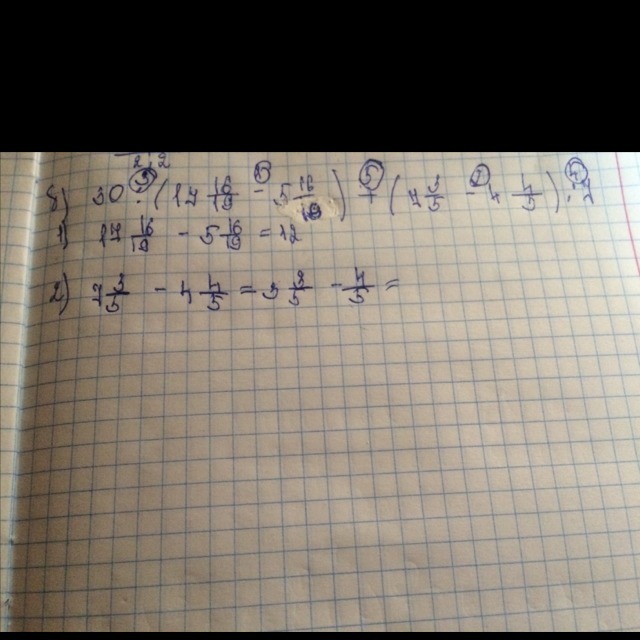 2) 2
б) 30 : (17 16/19 - 5 16/19) + (7 3/5 - 4 4/5) : 7
1) 17 16/19 - 5 16/19 = 12
2) 7 3/5 - 4 4/5 = 3 3/5 - 4/5 =